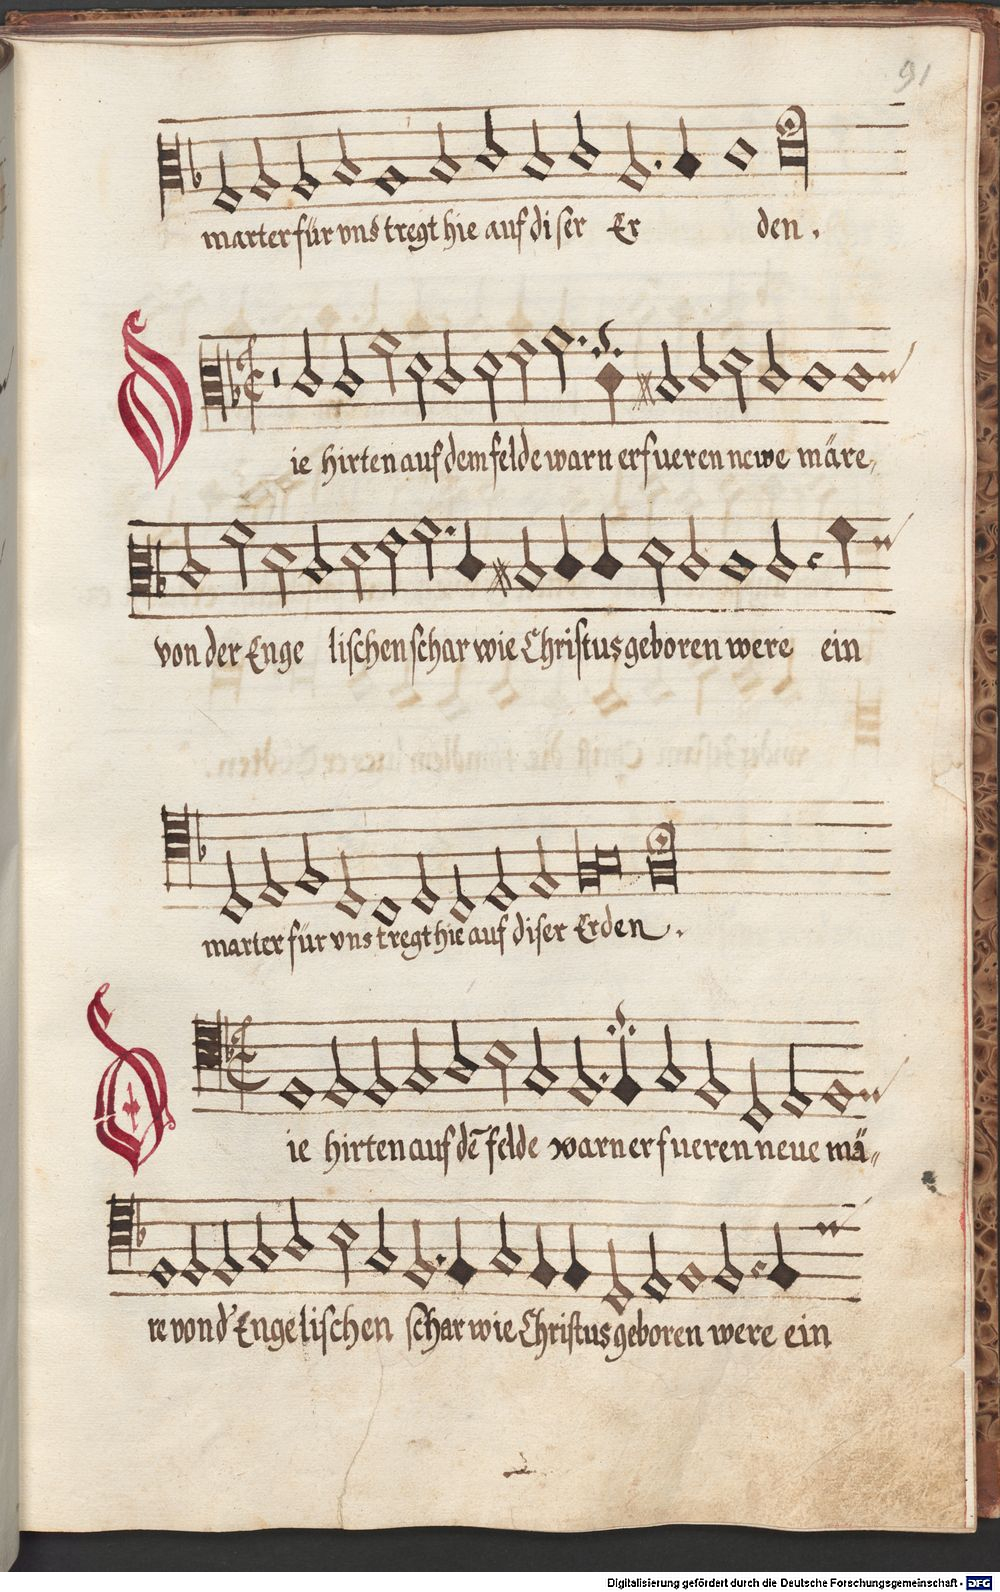 91
marter für vns tregt hie auf diser Er den.
Die hirten auf dem felde warn erfueren newe märe,
von der Enge lischen schar wie Christus geboren were ein
marter für vns tregt hie auf diser Erden.
Die hirten auf dē felde warn erfueren neue mä⸗
re von d' Engelischen schar wie Christus geboren were ein
Digitalisierung gefördert durch die Deutsche Forschungsgemeinschaft - DFG